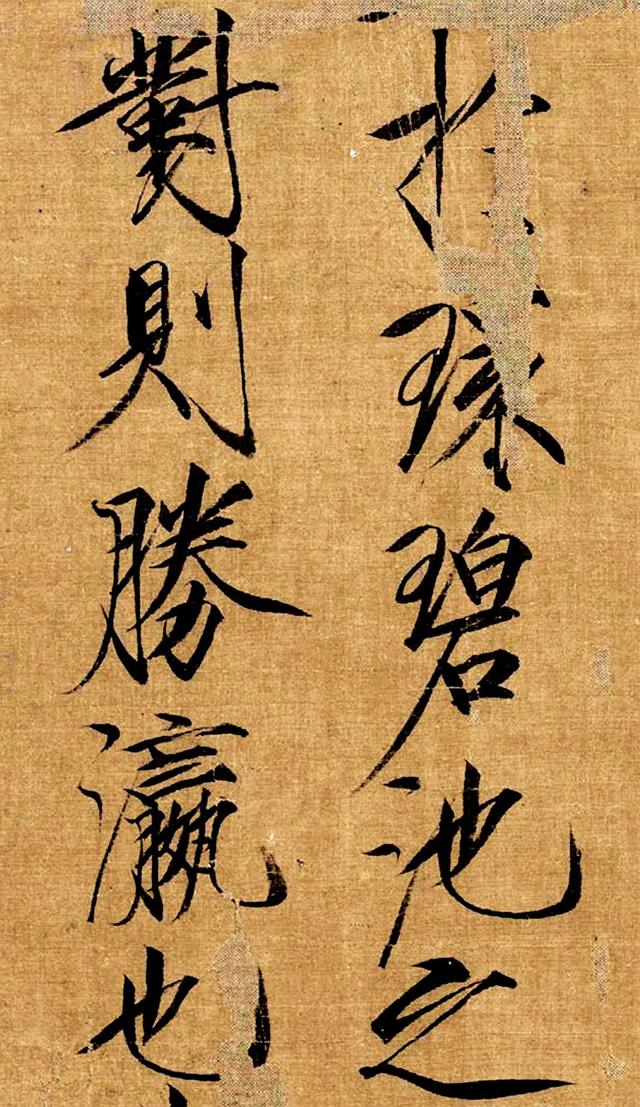 球碧池之
對則勝瀛也